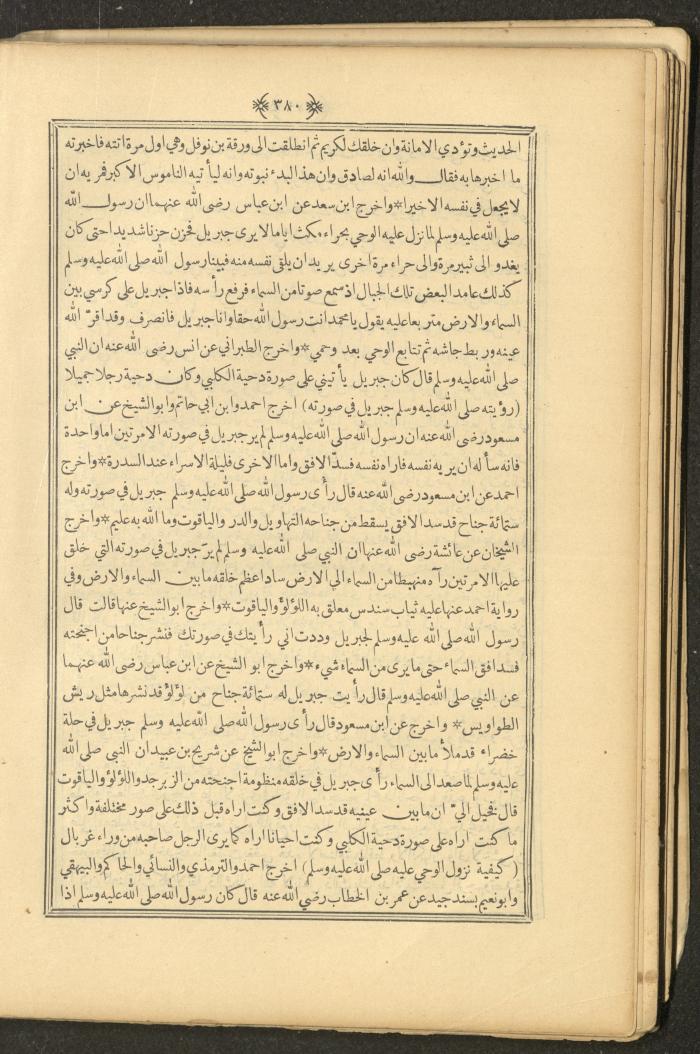 ٣٨٠
الحديث وتؤدي الامانة وان خلقك لكريم ثم انطلقت الى ورقة بن نوفل وهي اول مرة اتته فاخبرته
ما اخبرها به فقال والله انه لصادق وان هذا البدء نبوته وانه ليأتيه الناموس الاكبر فمريه ان
لا يجعل في نفسه الا خيرا * واخرج ابن سعد عن ابن عباس رضى الله عنهما ان رسول الله
صلى الله عليه وسلم لما نزل عليه الوحي بحراء مكث اياما لا يرى جبريل فحزن حزنا شديدا حتى كان
يغدو الى ثبير مرة والى حراء مرة اخرى يريد ان يلقى نفسه منه فبينا رسول الله صلى الله عليه وسلم
كذلك عامدا لبعض تلك الجبال اذ سمع صوتا من السماء فرفع رأسه فاذا جبريل على كرسي بين
السماء والارض متربعا عليه يقول يا محمد انت رسول الله حقا وانا جبريل فانصرف وقد اقرّ الله
عينه وربط جاشه ثم تتابع الوحي بعد وحمي * واخرج الطبراني عن انس رضى الله عنه ان النبي
صلى الله عليه وسلم قال كان جبريل يأتيني على صورة دحية الكلبي وكان دحية رجلا جميلا
(رؤيته صلى الله عليه وسلم جبريل في صورته) اخرج احمد وابن ابي حاتم وابو الشيخ عن ابن
مسعود رضى الله عنه ان رسول الله صلى الله عليه وسلم لم ير جبريل في صورته الا مرتين اما واحدة
فانه سأله ان يريه نفسه فاراه نفسه فسدّ الافق واما الاخرى فليلة الاسراء عند السدرة * واخرج
احمد عن ابن مسعود رضى الله عنه قال رأى رسول الله صلى الله عليه وسلم جبريل في صورته وله
ستمائة جناح قد سد الافق يسقط من جناحه التهاويل والدر والياقوت وما الله به عليم * واخرج
الشيخان عن عائشة رضى الله عنها ان النبي صلى الله عليه وسلم لم يرَ جبريل في صورته التي خلق
عليها الا مرتين رآه منهبطا من السماء الى الارض سادا عظم خلقه ما بين السماء والارض وفي
رواية احمد عنها عليه ثياب سندس معلق به اللؤلؤ والياقوت * واخرج ابو الشيخ عنها قالت قال
رسول الله صلى الله عليه وسلم لجبريل وددت اني رأيتك في صورتك فنشر جناحا من اجنحته
فسد افق السماء حتى ما يرى من السماء شيء * واخرج ابو الشيخ عن ابن عباس رضى الله عنهما
عن النبي صلى الله عليه وسلم قال رأيت جبريل له ستمائة جناح من لؤلؤ قد نشرها مثل ريش
الطواويس * واخرج عن ابن مسعود قال رأى رسول الله صلى الله عليه وسلم جبريل في حلة
خضراء قد ملأ ما بين السماء والارض * واخرج ابو الشيخ عن شريح بن عبيد ان النبى صلى الله
عليه وسلم لما صعد الى السماء رأى جبريل في خلقه منظومة اجنحته من الزبرجد واللؤلؤ والياقوت
قال فخيل اليّ ان ما بين عينيه قد سد الافق وكنت اراه قبل ذلك على صور مختلفة واكثر
ما كنت اراه على صورة دحية الكلبي وكنت احيانا اراه كما يرى الرجل صاحبه من وراء غربال
(كيفية نزول الوحي عليه صلى الله عليه وسلم) اخرج احمد والترمذي والنسائي والحاكم والبيهقي
وابو نعيم بسند جيد عن عمر بن الخطاب رضي الله عنه قال كان رسول الله صلى الله عليه وسلم اذا